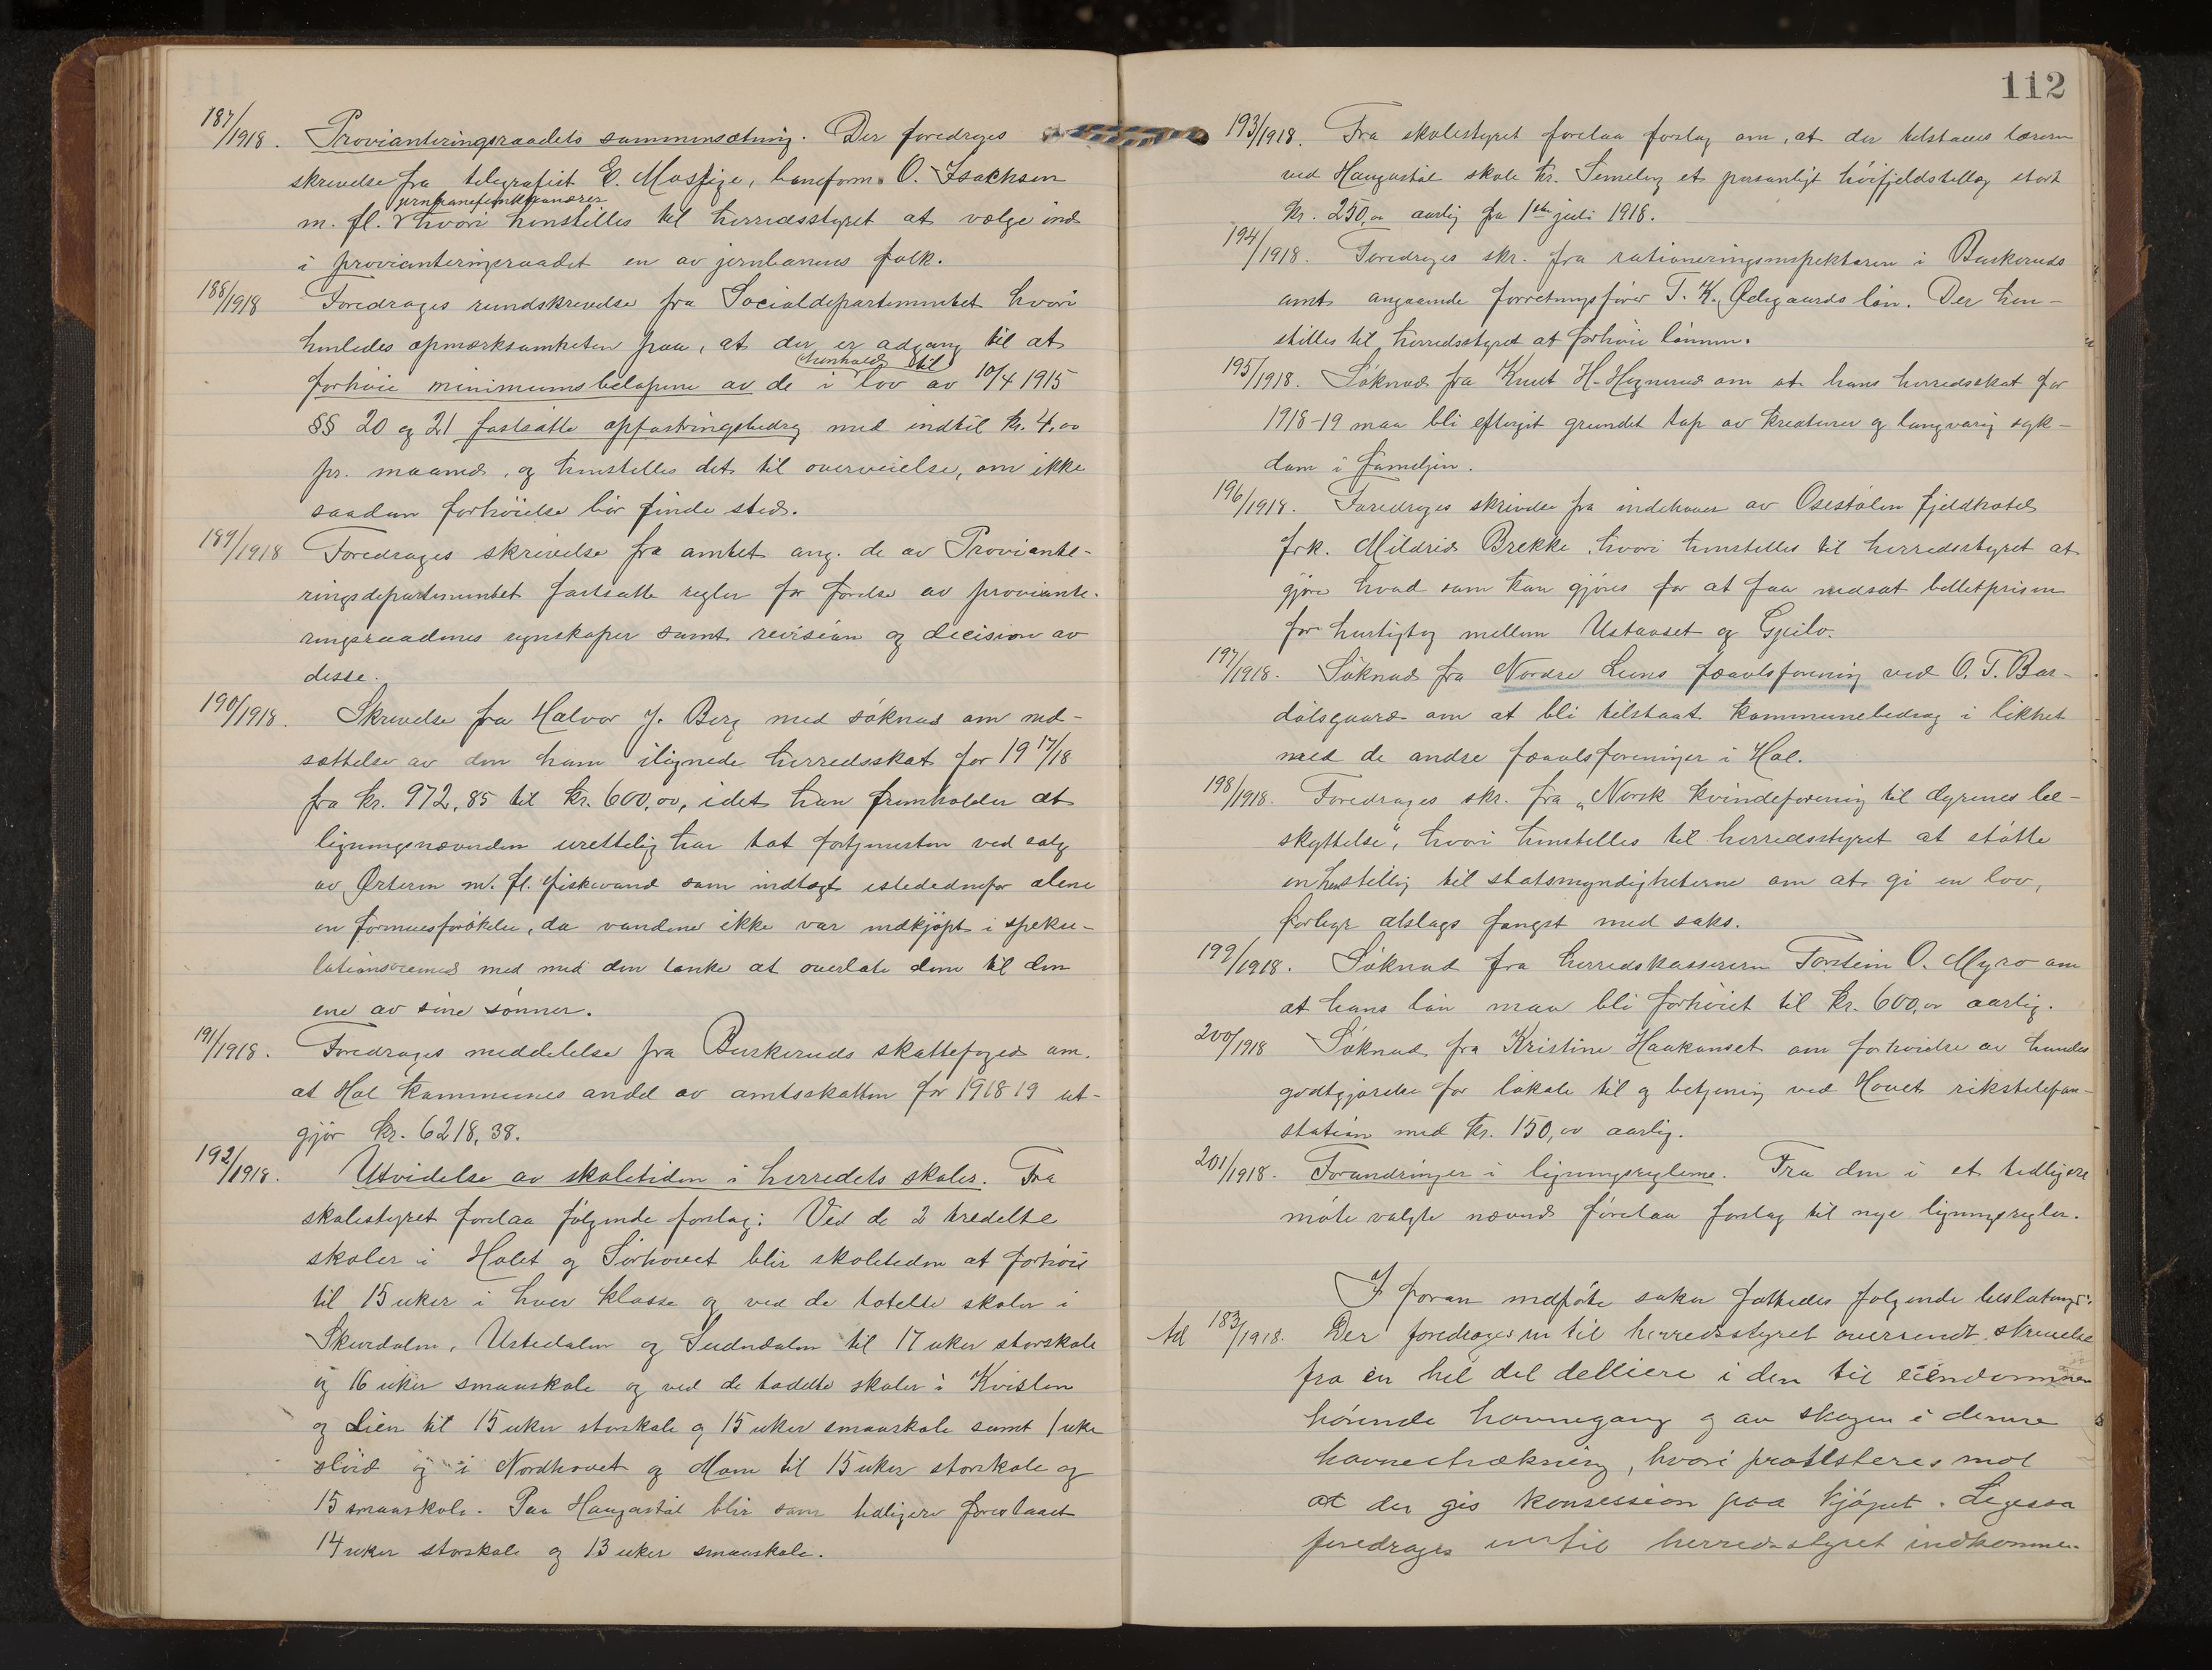 187/1918. Provianteringsraadets sammensætning. Der foredroges
skrivelse fra telegrafist E. Mosfige, baneform. O. Isachsen
jernbanefunktionærer
m. fl. hvori henstilles til herredsstyret at vælge ind
i provianteringsraadet en av jernbanens folk.
188/1918 Foredroges rundskrivelse fra Socialdepartementet hvori
henledes opmerksomheten paa, at der er adgang til at
henhold til
forhöie minimumsbelöpene av de i lov av 10/4 1915
§§ 20 og 21 fastsatte opfostringsbidrag med indtil kr. 4,00
pr. maaned, og henstilles det til overveielse, om ikke
saadan forhöielse bör finde sted.
189/1918 Foredroges skrivelse fra amtet ang. de av Proviante-
ringsdepartementet fastsatte regler for förelse av proviante-
ringsraadenes regnskaper samt revision og decision av
disse.
190/1918. Skrivelse fra Halvor J. Berg med söknad om ned-
sættelse av den ham ilignede herredsskat for 1917/18
fra kr. 972,85 til kr. 600,00, idet han fremholder at
ligningsnævnden urettelig har tat fortjenesten ved salg
av Örteren m. fl. fiskevand som indtægt istedenfor alene
en formuesforökelse, da vandene ikke var indkjöpt i speku-
lationsöiemed med med den tanke at overlate dem til den
ene av sine sönner.
191/1918. Foredroges meddelelse fra Buskeruds skattefoged om.
at Hol kommunes andel av amtsskatten for 1918 19 ut-
gjör kr. 6218,38.
192/1918. Utvidelse av skoletiden i herredets skoler. Fra
skolestyret forelaa fölgende forslag: Ved de 2 tredelte
skoler i Holet og Sörhovet blir skoletiden at forhöie
til 15 uker i hver klasse og ved de todelte skoler i
Skurdalen, Ustedalen og Sudndalen til 17 uker storskole
og 16 uker smaaskole og ved de todelte skoler i Kvislen
og Lien til 15 uker storskole og 15 uker smaaskole samt 1 uke
slöid og i Nordhovet og Moen til 15 uker storskole og
15 smaaskole. Paa Haugastöl blir som tidligere foreslaaet
14 uker storskole og 13 uker smaaskole.
112
193/1918. Fra skolestyret forelaa forslag om, at der tilstaaes læreren
ved Haugastöl skole hr. Semeleng et personligt höifjeldstillæg stort
kr. 250,00 aarlig fra 1ste juli 1918.
194/1918. Foredroges skr. fra rationeringsinspektören i Buskeruds
amt angaaende forretningsförer T. K. Ødegaards lön. Der hen-
stilles til herredsstyret at forhöie lönnen.
195/1918. Söknad fra Knut H. Hognerud om at hans herredsskat for
1918-19 maa bli eftergit grundet tap av kreaturer og langvarig syk-
dom i familjen.
196/1918. Foredroges skrivelse fra indehaver av Osestölen fjeldhotel
frk. Mildrid Brekke, hvori henstilles til herredsstyret at
gjöre hvad som kan gjöres for at faa nedsat billetprisen
for hurtigtog mellem Ustaoset og Gjeilo.
197/1918. Söknad fra Nordre Liens fæavlsforening ved O. T. Bar-
dölsgaard om at bli tilstaat kommunebidrag i likhet
med de andre fæavlsforeninger i Hol.
198/1918. Foredroges skr. fra „Norsk kvindeforening til dyrenes be-
skyttelse“, hvori henstilles til herredsstyret at stötte
en henstillig til statsmyndigheterne om at gi en lov,
forbyr alslags fangst med saks.
199/1918. Söknad fra herredskassereren Torstein O. Myro om
at hans lön maa bli forhöiet til kr. 600,00 aarlig.
200/1918 Söknad fra Kristine Haakanset om forhöielse av hendes
godtgjörelse for lokale til og betjening ved Hovet rikstelefon-
station med kr. 150,00 aarlig.
201/1918. Forandringer i ligningsreglerne. Fra den i et tidligere
möte valgte nævnd forelaa forslag til nye ligningsregler.
I foran indförte saker fattedes fölgende beslutning:
Ad 183/1918. Der foredroges en til herredsstyret oversendt skrivelse
fra en hel del deleiere i den til eiendommen
hörende havnegang og av skogen i denne
havnestrækning, hvori protesteres mot
at der gis konsession paa kjöpet. Legesaa
foredroges en til herredsstyret indkommen